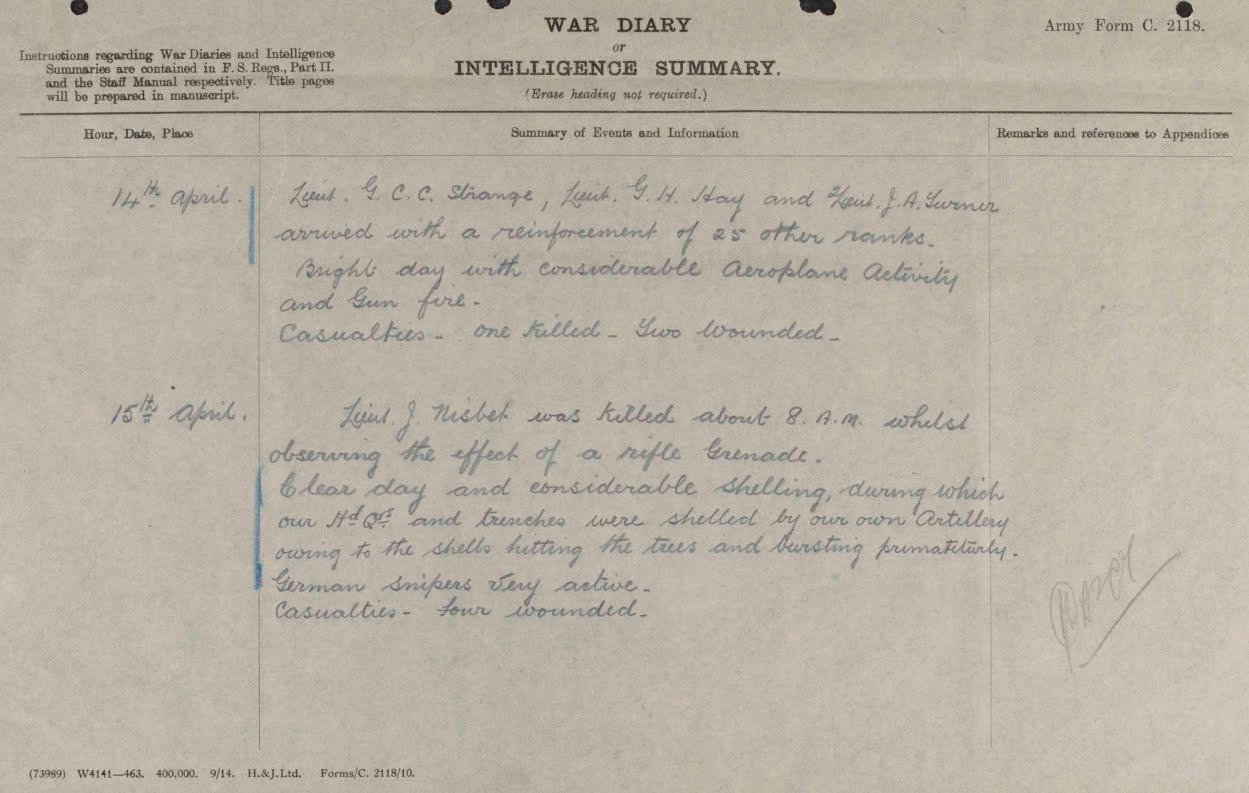 WAR DIARY
or
INTELLIGENCE SUMMARY.
(Erase heading not required.)
Army Form C. 2118.
Instructions regarding War Diaries and Intelligence
Summaries are contained in F. S. Regs., Part II.
and the Staff Manual respectively. Title pages
will be prepared in manuscript.
Hour, Date, Place
Summary of Events and Information
Remarks and references to Appendices
14th April.
Lieut. G. C. C. Strange, Lieut. G. H. Hay and Lieut. J. A. Turner
arrived with a reinforcement of 25 other ranks.
Bright day with considerable Aeroplane Activity
and Gun fire -
Casualties - one killed - Two wounded -
15th April.
Lieut. J. Nisbet was killed about 8. A.M. whilst
observing the effect of a rifle Grenade.
Clear day and considerable shelling, during which
our Hd Qrs and trenches were shelled by our own Artillery
owing to the shells hitting the trees and bursting primaturly.
German snipers very active -
Casualties - four wounded -
(73989) W4141—463. 400,000. 9/14. H.&J.Ltd. Forms/C. 2118/10.